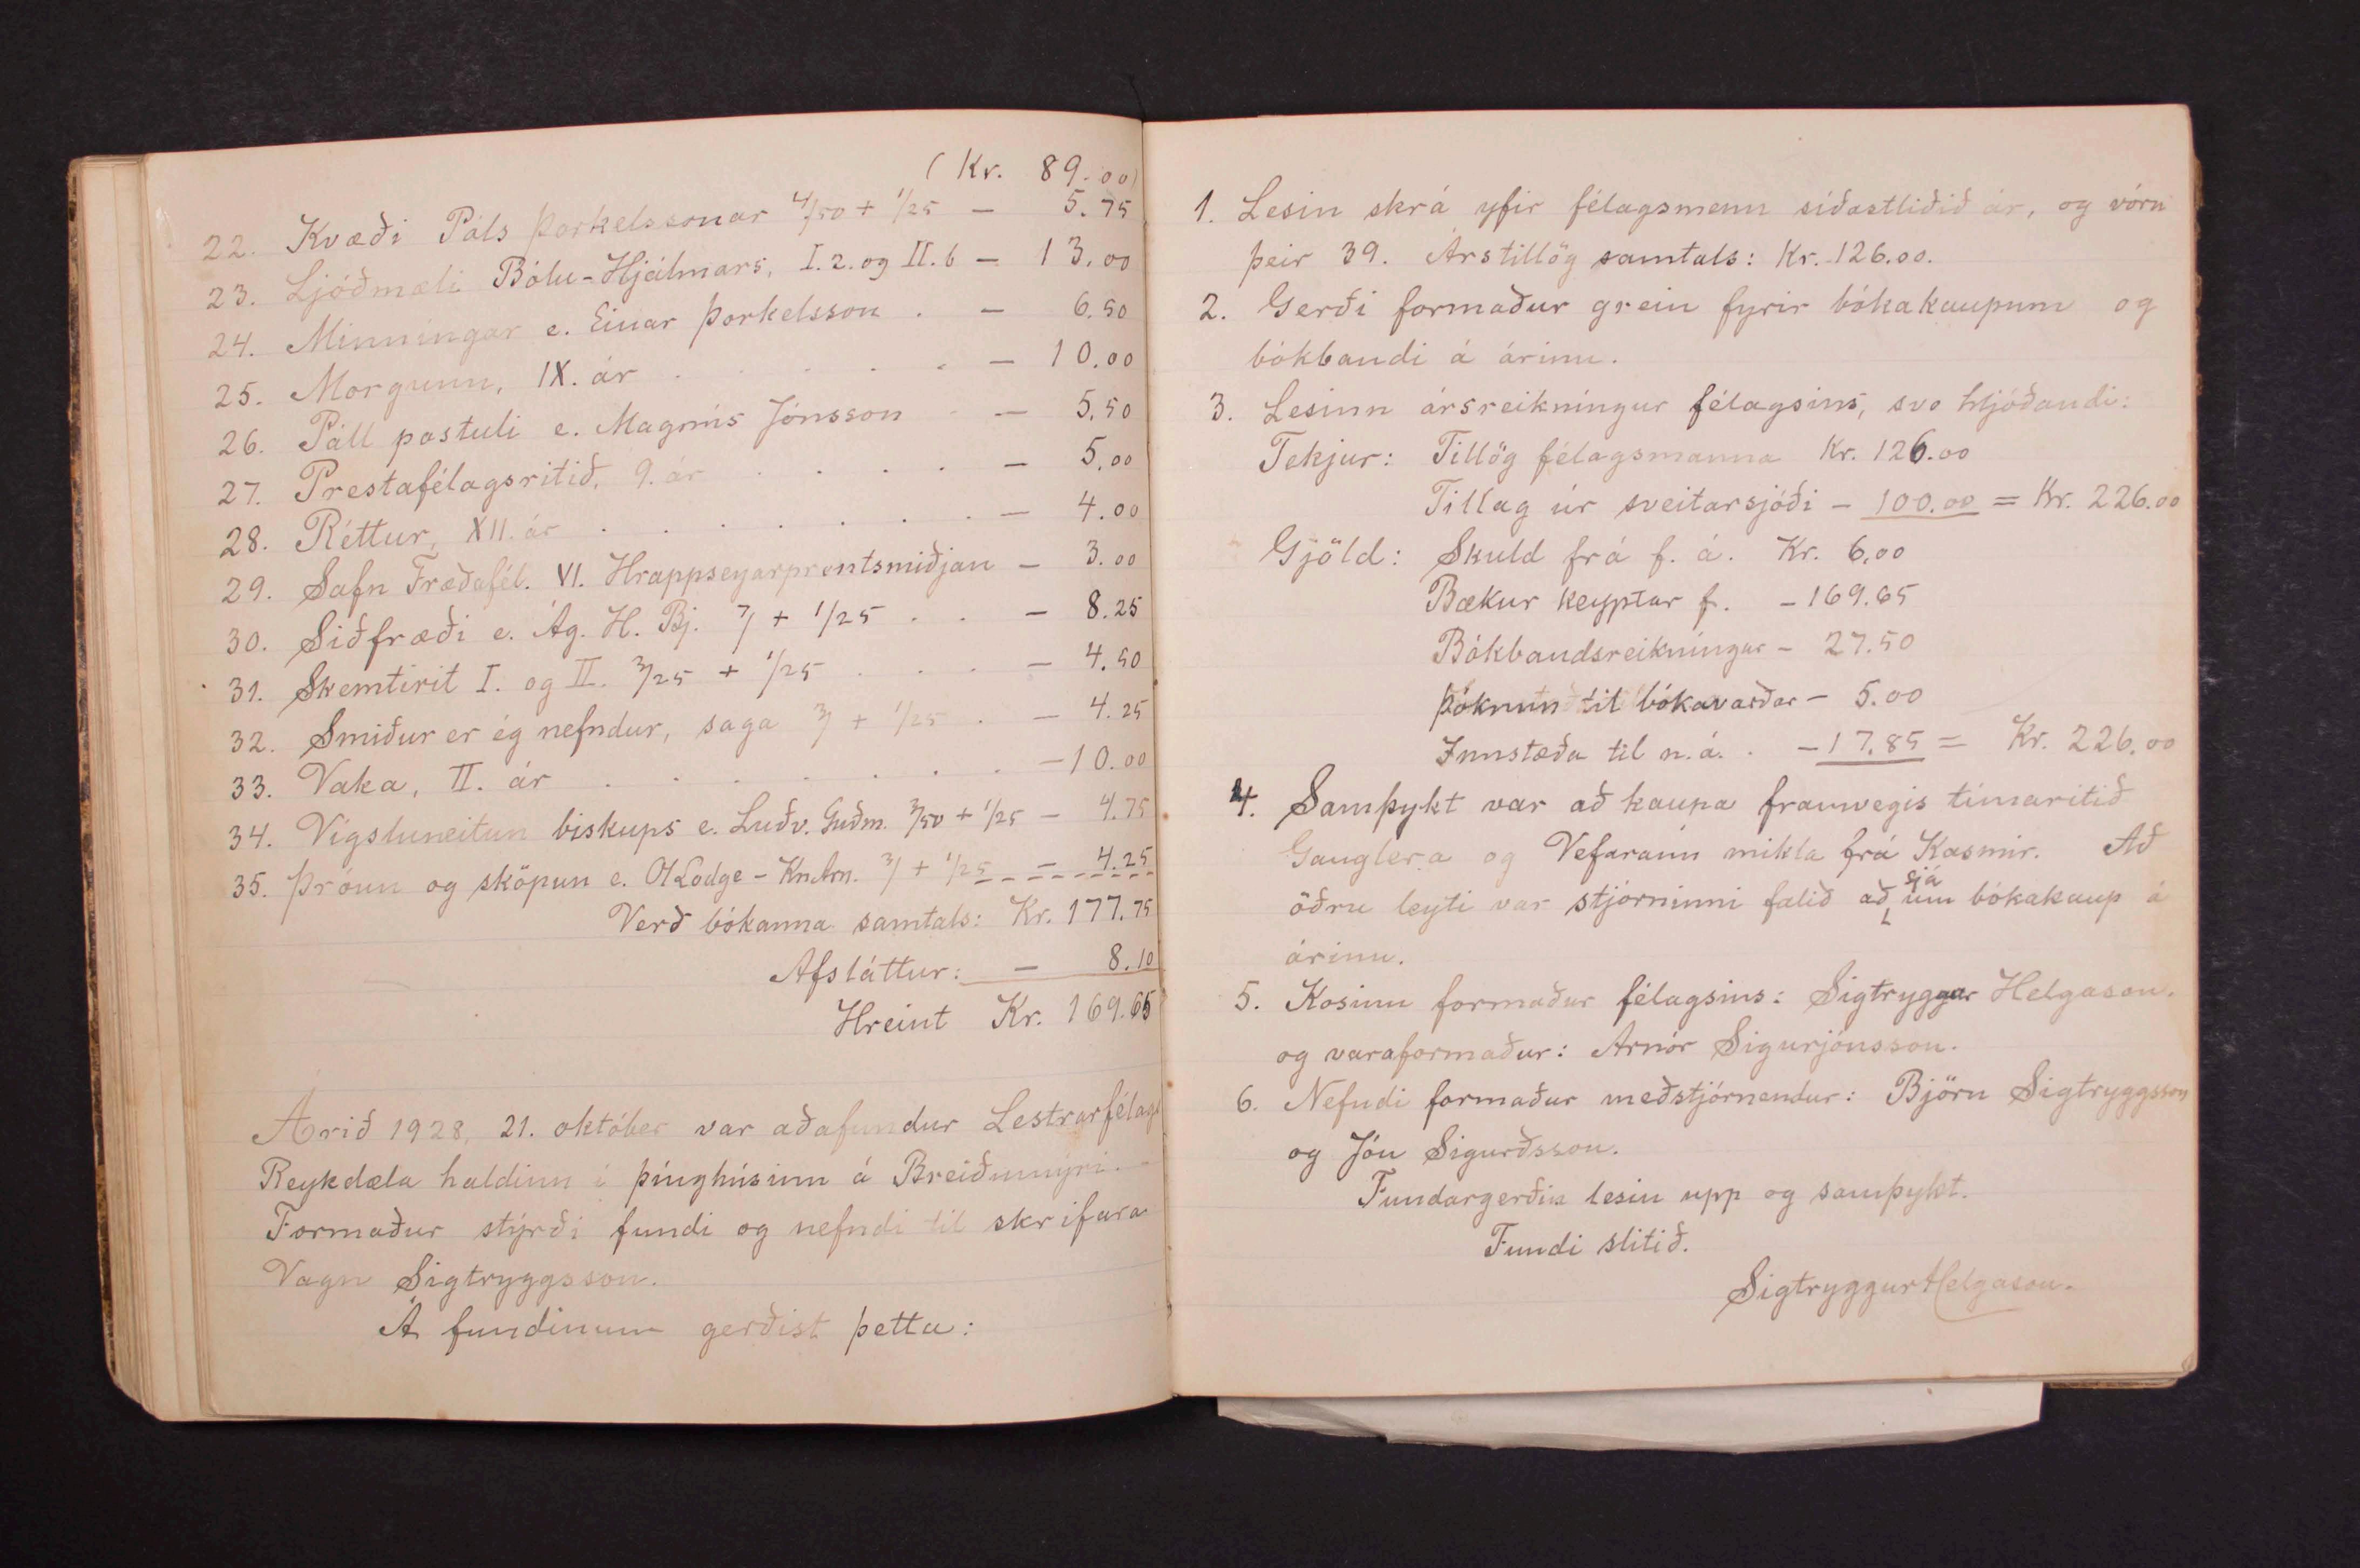 (Kr. 89.00)
22. Kvæði Páls Þorkelssonar 4/50 + 1/25 — 5.75
23. Ljóðmæli Bólu-Hjálmars, I.2. og II.b — 13.00
24. Minningar e. Einar Þorkelsson . — 6.50
25. Morgunn, IX. ár . . . . . — 10.00
26. Páll postuli e. Magnús Jónsson — 5.50
27. Prestafélagsritið, 9. ár . . . . — 5.00
28. Réttur, XII. ár . . . . . . . — 4.00
29. Safn Fræðafél. VI. Hrappseyarprentsmiðjan — 3.00
30. Siðfræði e. Ág. H. Bj. 7/ + 1/25 . . — 8.25
31. Skemtirit I. og II. 3/25 + 1/25 . . . — 4.50
32. Smiður er ég nefndur, saga 3/ + 1/25 . — 4.25
33. Vaka, II. ár . . . . . . . — 10.00
34. Vígsluneitun biskups e. Luðv. Guðm. 3/50 + 1/25 — 4.75
35. Þróun og sköpun e. O Lodge - Kn.Arn. 3/ + 1/25 — 4.25
Verð bókanna samtals: Kr. 177.75
Afsláttur: — 8.10
Hreint Kr. 169.65
Árið 1928, 21. október var aðafundur Lestrarfélags
Reykdæla haldinn í þinghúsinu á Breiðumýri.
Formaður stýrði fundi og nefndi til skrifara
Vagn Sigtryggsson.
Á fundinum gerðist þetta:
1. Lesin skrá yfir félagsmenn síðastliðið ár, og vóru
þeir 39. Árstillög samtals: Kr. 126.00.
2. Gerði formaður grein fyrir bókakaupum og
bókbandi á árinu.
3. Lesinn ársreikningur félagsins, svo hljóðandi:
Tekjur: Tillög félagsmanna Kr. 126.00
Tillag úr sveitarsjóði — 100.00 = Kr. 226.00
Gjöld: Skuld frá f. á. Kr. 6.00
Bækur keyptar f. — 169.65
Bókbandsreikningur — 27.50
Þóknun til bókavarðar — 5.00
Innstæða til n.á. . — 17.85 = Kr. 226.00
4. Samþykt var að kaupa framvegis tímaritið
Ganglera og Vefarann mikla frá Kasmir. Að
öðru leyti var stjórninni falið að sjá um bókakaup á
árinu.
5. Kosinn formaður félagsins: Sigtryggur Helgason.
og varaformaður: Arnór Sigurjónsson.
6. Nefndi formaður meðstjórnendur: Björn Sigtryggsson
og Jón Sigurðsson.
Fundargerðin lesin upp og samþykt.
Fundi slitið.
Sigtryggur Helgason.